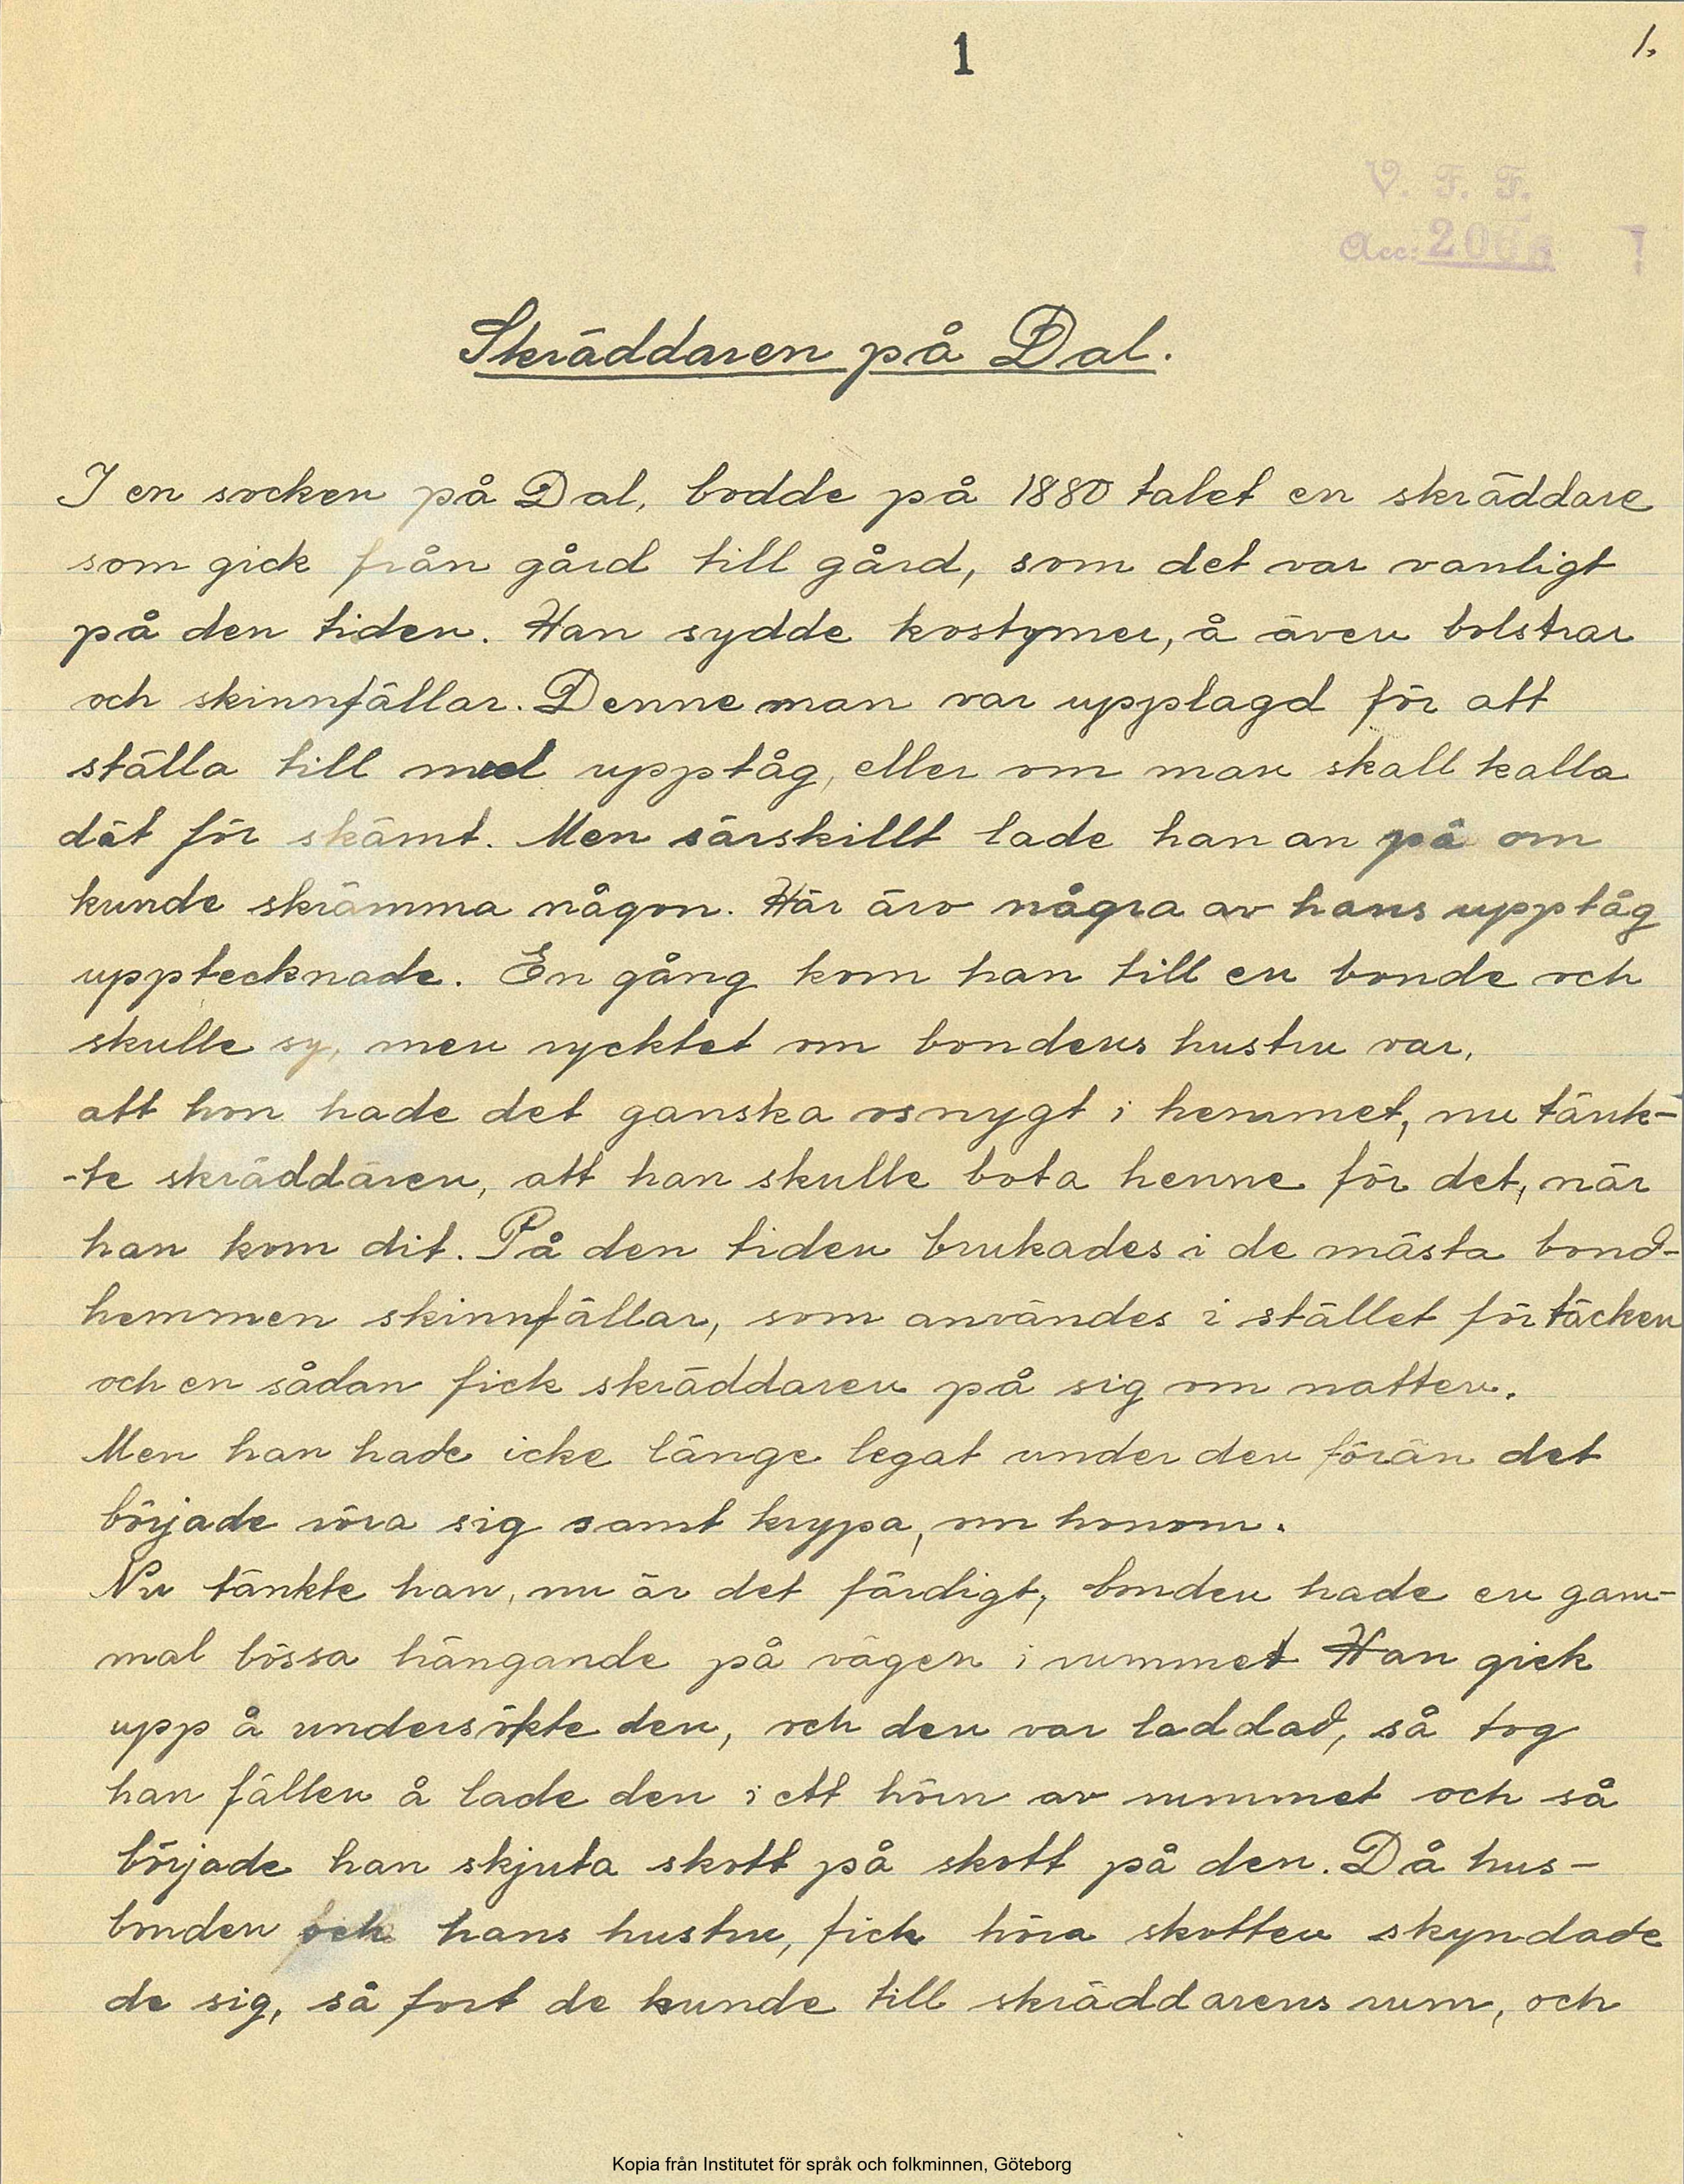 1
1.
V. F. F.
Acc: 2006
Skräddaren på Dal.
I en socken på Dal, bodde på 1880 talet en skräddare
som gick från gård till gård, som det var vanligt
på den tiden. Han sydde kostymer, å även bolstrar
och skinnfällar. Denne man var upplagd för att
ställa till med upptåg, eller om man skall kalla
dät för skämt. Men särskillt lade han an på om
kunde skrämma någon. Här äro några av hans upptåg
upptecknade. En gång kom han till en bonde och
skulle sy, men rycktet om bondens hustru var,
att hon hade det ganska osnygt i hemmet, nu tänk-
-te skräddaren, att han skulle bota henne för det, när
han kom dit. På den tiden brukades i de mästa bond-
hemmen skinnfällar, som användes i stället för täcken
och en sådan fick skräddaren på sig om natten.
Men han hade icke länge legat under den förän det
började röra sig samt krypa, om honom.
Nu tänkte han, nu är det färdigt, bonden hade en gam-
mal bössa hängande på vägen i rummet Han gick
upp å undersökte den, och den var laddad, så tog
han fällen å lade den i ett hörn av rummet och så
började han skjuta skott på skott på den. Då hus-
bonden och hans hustru, fick höra skotten skyndade
de sig, så fort de kunde till skräddarens rum, och
Kopia från Institutet för språk och folkminnen, Göteborg